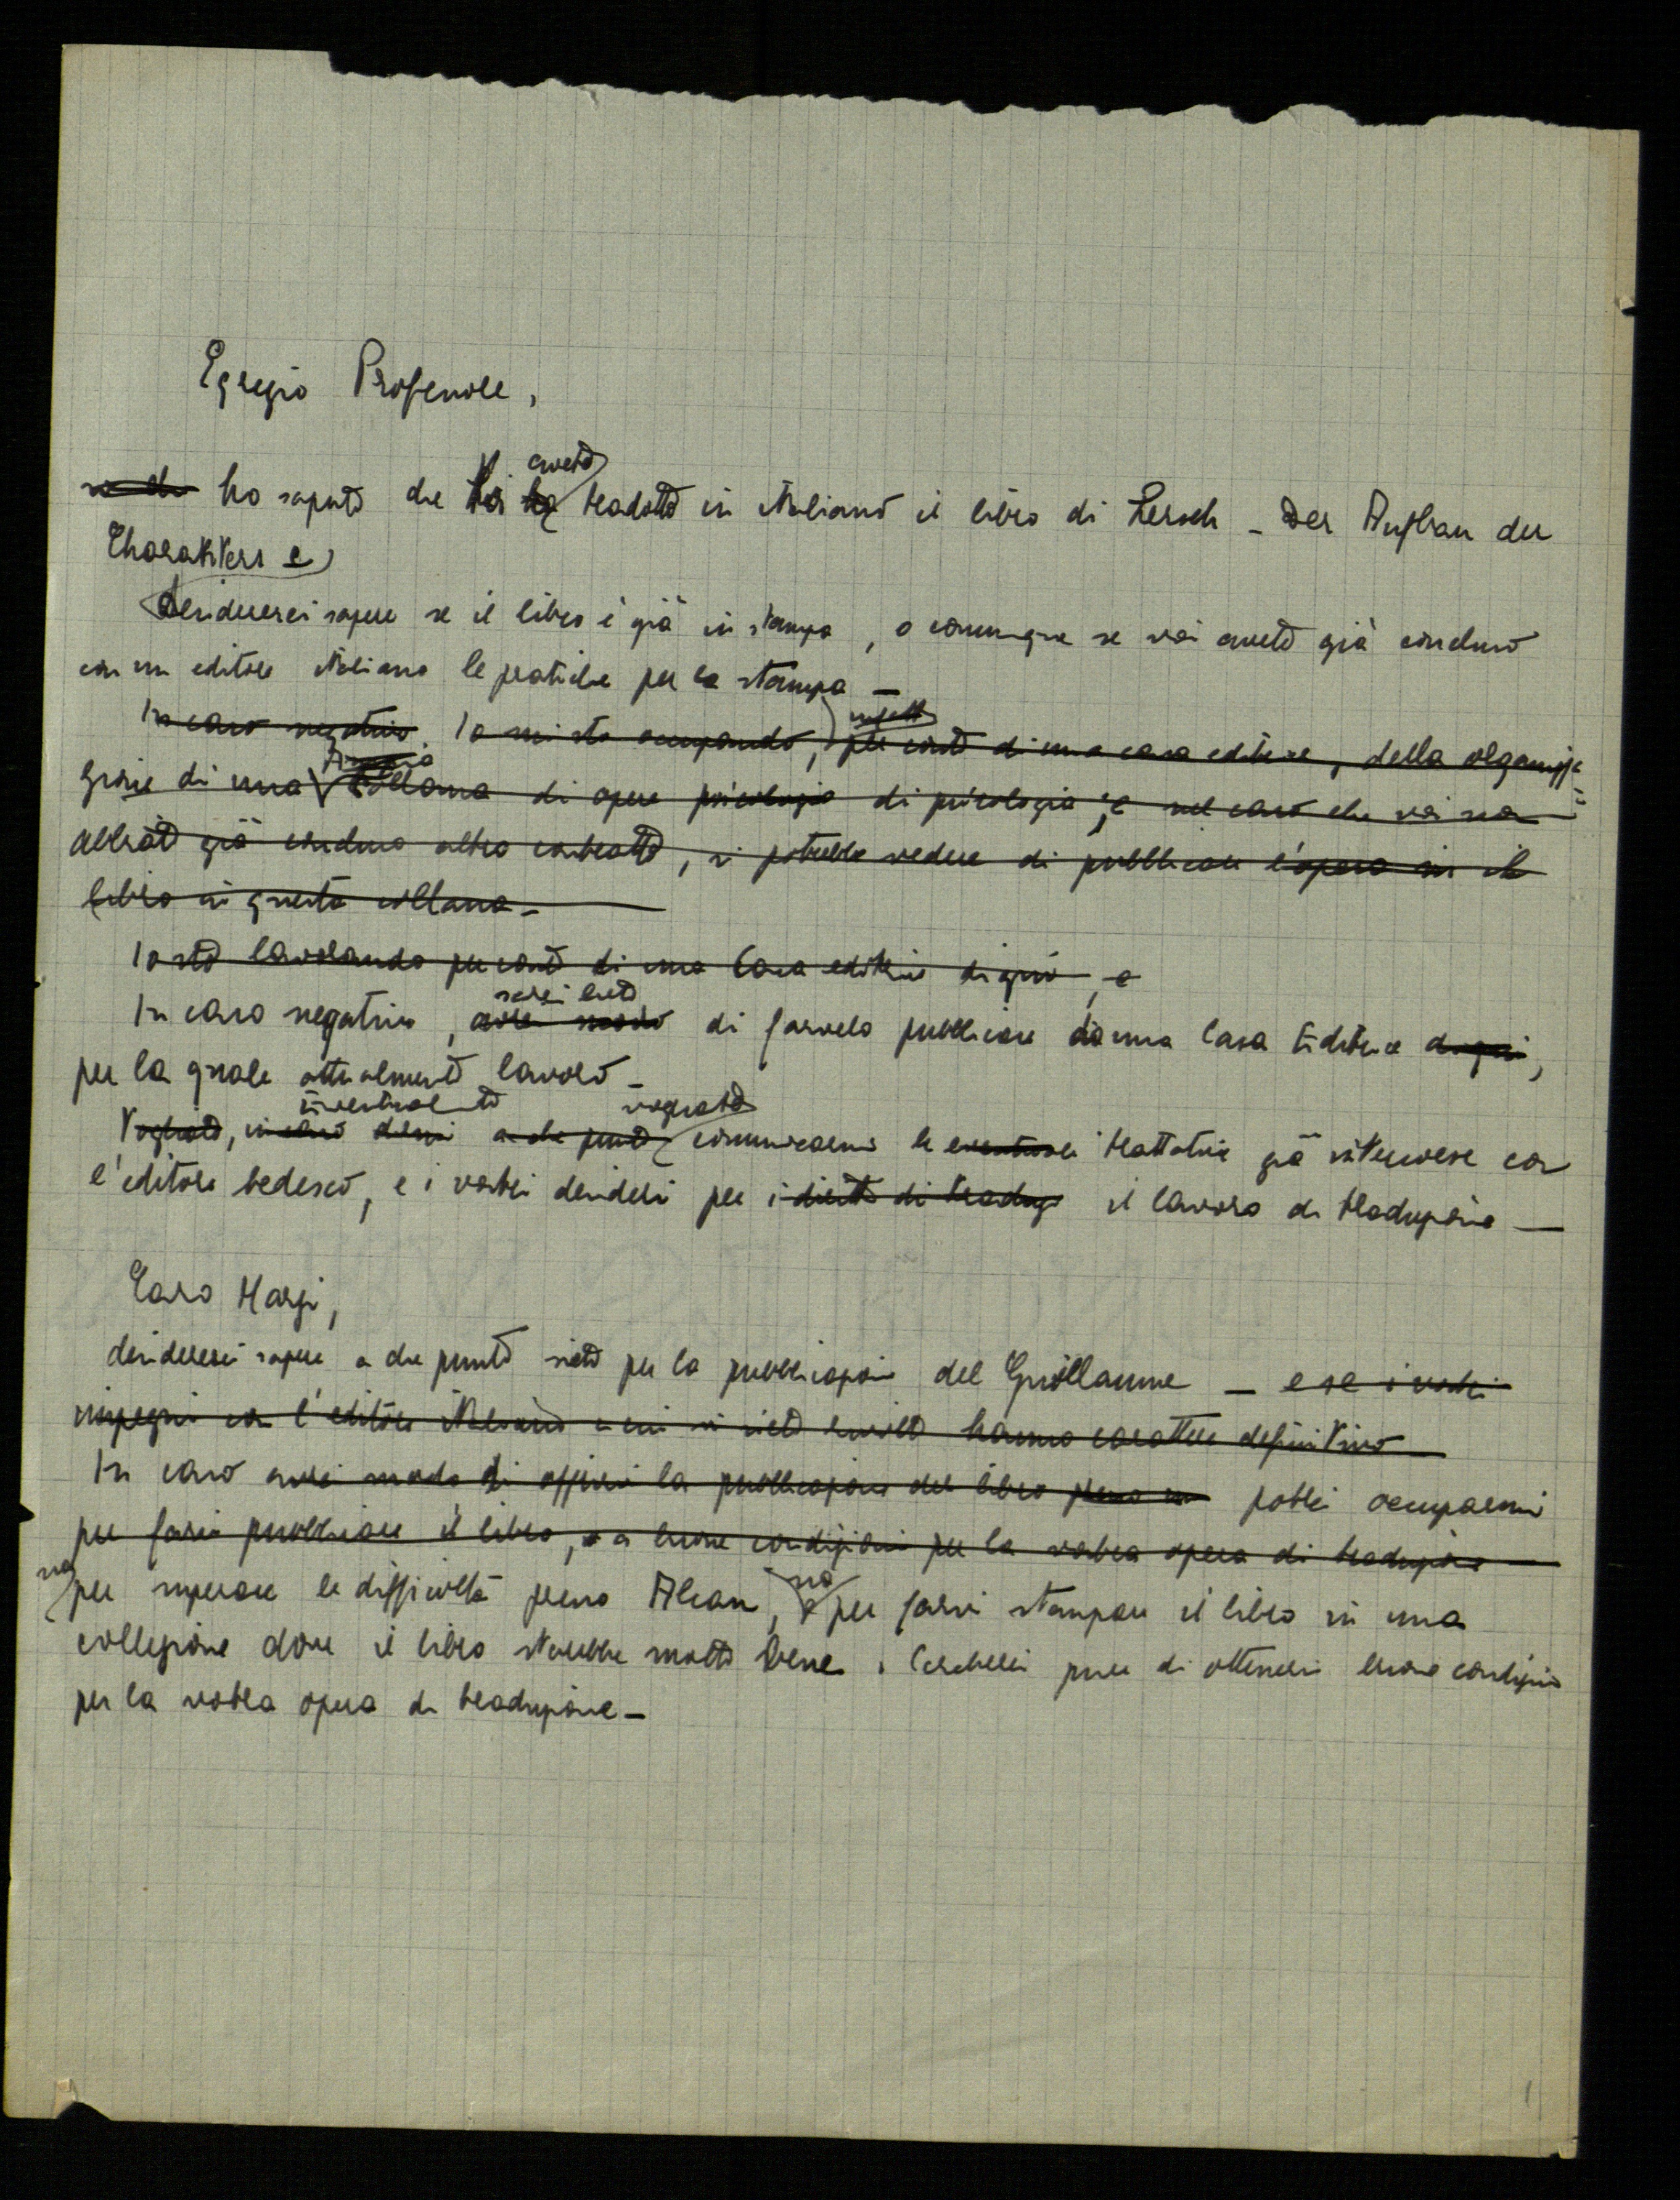 Egregio Professore,
ho saputo che Voi avete tradotto in italiano il libro di Lersch - Der Aufbau der
Charakters e
desidererei sapere se il libro è già in stampa, o comunque se voi avete già concluso
con un editore italiano le pratiche per la stampa -
In caso negativo. Io mi sto occupando, per conto di una casa editrice, della organizza
zione di una collana di opere psicologia di psicologia, e nel caso che voi non
abbiate già concluso altro contratto, si potrebbe vedere di pubblicare l'opera in il
libro in questa collana -
Io sto lavorando per conto di una Casa editrice di qui, e
sarei lieto
In caso negativo, avrei modo di farvelo pubblicare da una Casa Editrice di qui,
per la quale attualmente lavoro -
eventualmente vogliate
Vogliate, in caso a che punto comunicarmi le eventuali trattative già intercorse con
l'editore tedesco, e i vostri desideri per i diritti di traduz il lavoro di traduzione -
Caro Marzi,
desidererei sapere a che punto siete per la pubblicazione del Guillaume - e se i vostri
impegni con l'editore italiano a cui vi siete rivolto hanno carattere definitivo -
In caso avrei modo di offrirvi la pubblicazione del libro presso un potrei occuparmi
per farvi pubblicare il libro, e a buone condizioni per la vostra opera di traduzione -
sia per superare le difficoltà presso Alcan, sia per farvi stampare il libro in una
collezione dove il libro starebbe molto bene. Cercherei pure di ottenervi buone condizioni
per la vostra opera di traduzione -